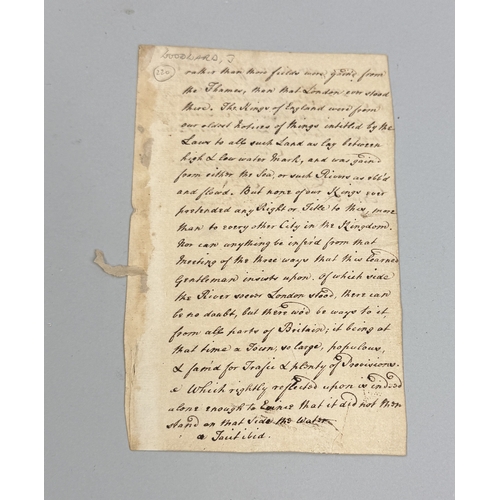 WOODWARD, J
220
rather than those fields were gained from
the Thames, than that London ever stood
there. The Kings of England were from
our oldest notices of things intitled by the
Laws to all such Land as lay between
high & low water mark, and was gain'd
from either the Sea, or such Rivers as ebb'd
and flow'd. But none of our Kings ever
pretended any Right or Title to this, more
than to every other City in the Kingdom.
Nor can anything be infer'd from that
Meeting of the three ways that this Learned
Gentleman insists upon. Of which side
the River soever London stood, there can
be no doubt, but there wod be ways to it
from all parts of Britain; it being at
that time a Town, so large, populous,
& fam'd for Trafic & plenty of Provisions.
a Which rightly reflected upon is indeed
alone enough to Evince that it did not then
stand on that Side the Water
a Tacit ibid.